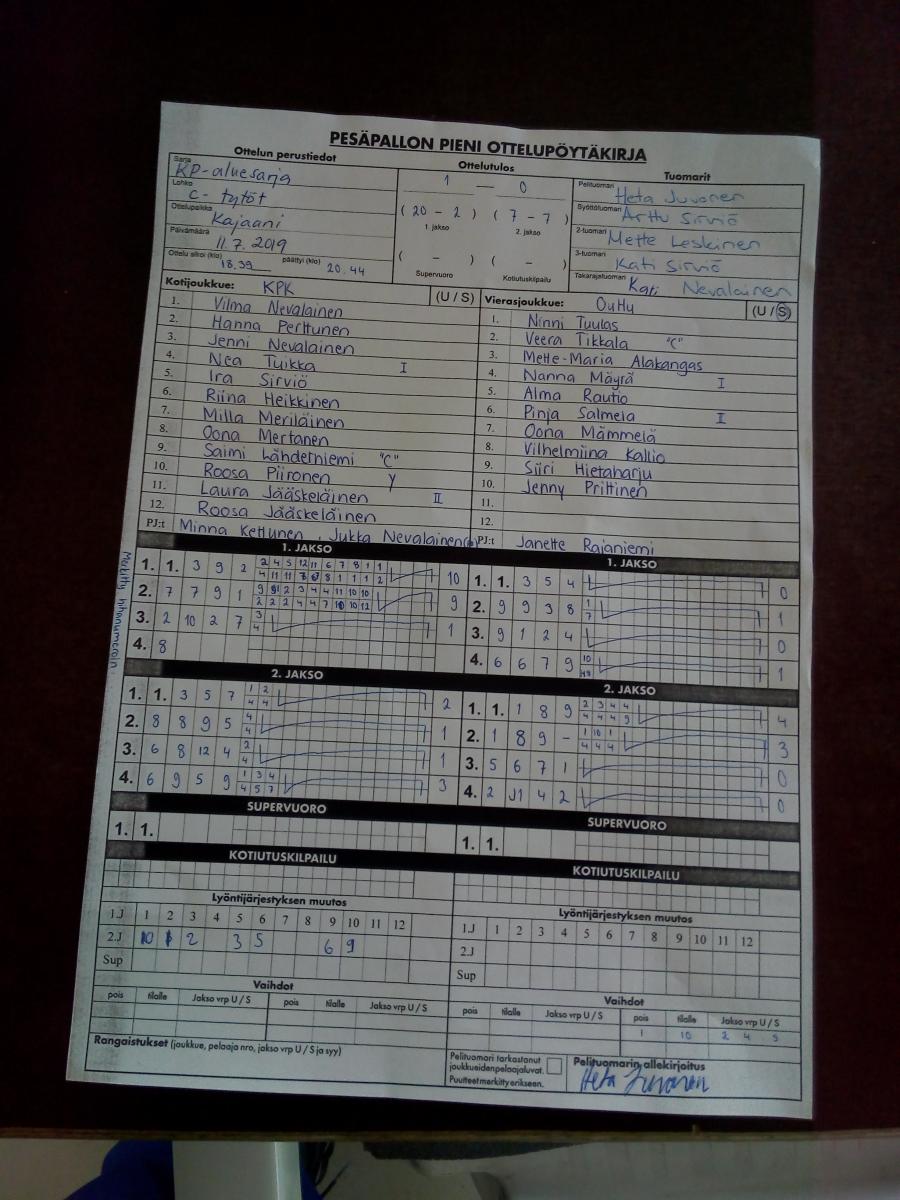 PESÄPALLON PIENI OTTELUPÖYTÄKIRJA
Ottelun perustiedot
Sarja
KP-aluesarja
Lohko
C-tytöt
Ottelupaikka
Kajaani
Päivämäärä
11.7.2019
Ottelu alkoi (klo) 18.39 päättyi (klo) 20.44
Ottelutulos
1 — 0
( 20 - 2 ) ( 7 - 7 )
1. jakso 2. jakso
( - ) ( - )
Supervuoro Kotiutuskilpailu
Tuomarit
Pelituomari Heta Juvonen
Syöttötuomari Arttu Sirviö
2-tuomari Mette Leskinen
3-tuomari Kati Sirviö
Takarajatuomari Kati Nevalainen
Kotijoukkue: KPK (U / S)
1. Vilma Nevalainen
2. Hanna Perttunen
3. Jenni Nevalainen
4. Nea Tuikka I
5. Ira Sirviö
6. Riina Heikkinen
7. Milla Meriläinen
8. Oona Mertanen
9. Saimi Lähderniemi "C"
10. Roosa Piironen Y
11. Laura Jääskeläinen II
12. Roosa Jääskeläinen
PJ:t Minna Kettunen, Jukka Nevalainen
Vierasjoukkue: OuHu (U / S)
1. Ninni Tuulas
2. Veera Tikkala "C"
3. Mette-Maria Alakangas
4. Nanna Mäyrä I
5. Alma Rautio
6. Pinja Salmela I
7. Oona Mämmelä
8. Vilhelmiina Kallio
9. Siiri Hietaharju
10. Jenny Prittinen
11.
12.
PJ:t Janette Rajaniemi
Merkitty hihanumeroin
1. JAKSO
1. 1. 3 9 2 2 4 5 12 11 6 7 8 1 1 10
4 11 11 7 6 8 1 1 1 2
2. 7 7 9 1 9 2 3 4 4 11 10 10 9
2 2 2 4 4 7 10 10 12
3. 2 10 2 7 3 1
4
4. 8
1. JAKSO
1. 1. 3 5 4 0
2. 9 9 3 8 1 1
7
3. 9 1 2 4 0
4. 6 6 7 9 10 1
2. JAKSO
1. 1. 3 5 7 1 2 2
4 4
2. 8 8 9 5 4 1
4
3. 6 8 12 4 2 1
4
4. 6 9 5 9 1 3 4 3
4 5 7
2. JAKSO
1. 1. 1 8 9 2 3 4 4 4
4 4 4 9
2. 1 8 9 - 1 10 1 3
4 4 4
3. 5 6 7 1 0
4. 2 J1 4 2 0
SUPERVUORO
1. 1.
SUPERVUORO
1. 1.
KOTIUTUSKILPAILU
KOTIUTUSKILPAILU
Lyöntijärjestyksen muutos
1.J 1 2 3 4 5 6 7 8 9 10 11 12
2.J 10 1 2 3 5 6 9
Sup
Lyöntijärjestyksen muutos
1.J 1 2 3 4 5 6 7 8 9 10 11 12
2.J
Sup
Vaihdot
pois tilalle Jakso vrp U / S pois tilalle Jakso vrp U / S
Vaihdot
pois tilalle Jakso vrp U / S pois tilalle Jakso vrp U / S
1 10 2 4 S
Rangaistukset (joukkue, pelaaja nro, jakso vrp U / S ja syy)
Pelituomari tarkastanut
joukkueiden pelaajaluvat.
Puutteet merkitty erikseen.
Pelituomarin allekirjoitus
Heta Juvonen